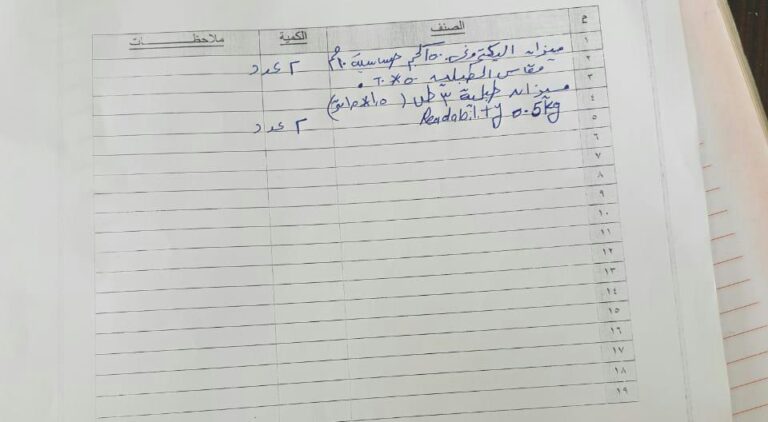 م الصنف الكمية ملاحظـــــــات
١ ميزان اليكتروني ١٥٠ كجم حساسية ١٠ جم
٢ مقاس الطبلية ٥٠*٦٠ ٢ عدد
٣ ميزان طبلية ٣ طن (١٥*١٥)
٤ Readability 0.5kg
٥ ٢ عدد
٦
٧
٨
٩
١٠
١١
١٢
١٣
١٤
١٥
١٦
١٧
١٨
١٩